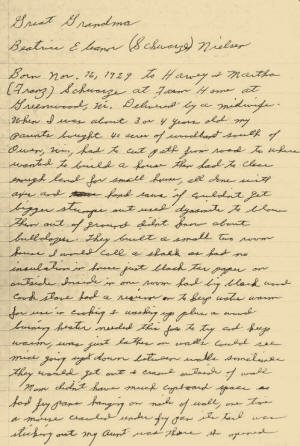 Great Grandma
Beatrice Eleanor (Schwarze) Nielsen
Born Nov. 16, 1929 to Harvey & Martha
(Franz) Schwarze at Farm Home at
Greenwood, Wi. Delivered by a midwife.
When I was about 3 or 4 years old my
parents bought 40 acres of woodland south of
Owen, Wis, had to cut path from road to where
wanted to build a house then had to clear
enough land for small house, all done with
axe and hand saw, if couldn't get
bigger stumps out used dynamite to blow
them out of ground didn't know about
bulldozer. They built a small two room
house I would call a shack as had no
insulation in house just black tar paper on
outside. Inside in one room had big black wood
cook stove had a reservoir on to keep water warm
for use in cooking & washing up plus a wood
burning heater needed this for to try and keep
warm, was just lathes on walls could see
mice going up & down between walls sometimes
they would get out & crawl outside of wall
Mom didn't have much cupboard space so
had fry pans hanging on nails of wall, one time
a mouse crawled under fry pan its tail was
sticking out my Aunt was there